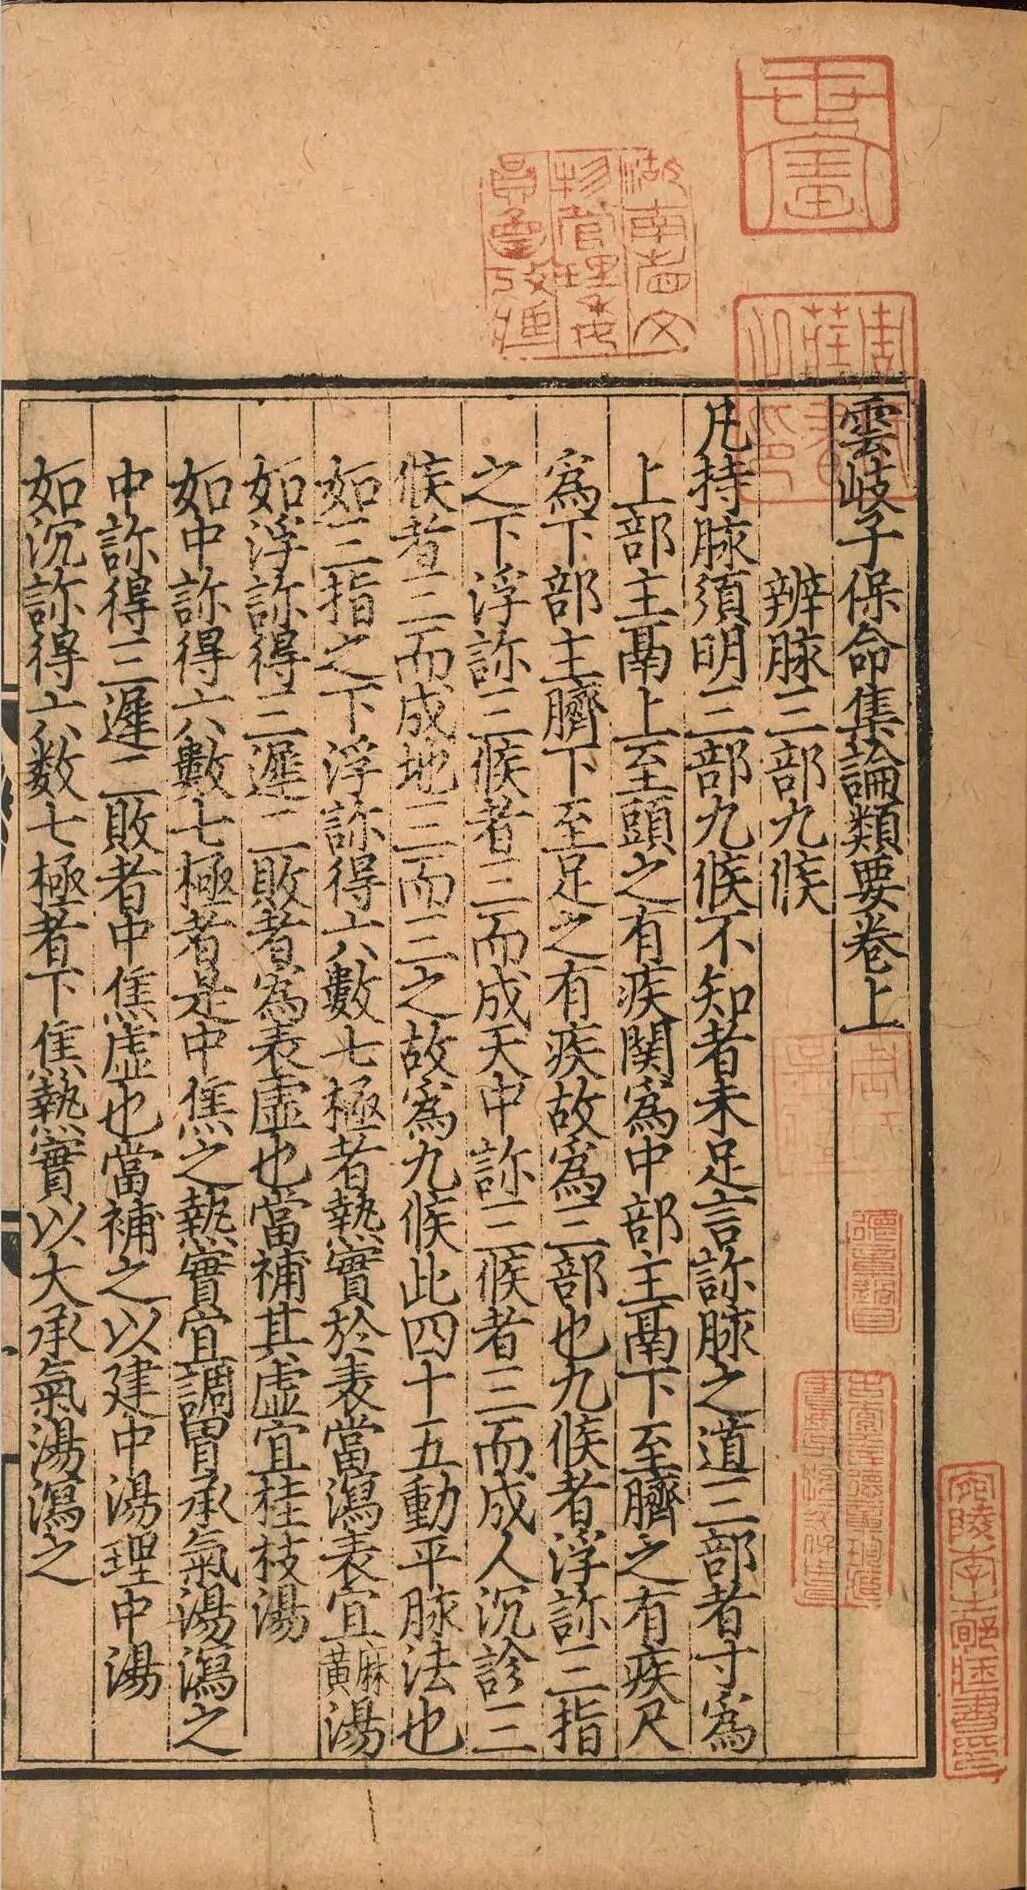 雲岐子保命集論類要卷上
辨脉三部九候
凡持脉須明三部九候不知者未足言診脉之道三部者寸為
上部主鬲上至頭之有疾関為中部主鬲下至臍之有疾尺
為下部主臍下至足之有疾故為三部也九候者浮診三指
之下浮診三候者三而成天中診三候者三而成人沉診三
候者三而成地三而三之故為九候此四十五動平脉法也
如三指之下浮診得六數七極者熱實於表當瀉表宜麻黄湯
如浮診得三遲二敗者為表虛也當補其虛宜桂枝湯
如中診得六數七極者是中焦之熱實宜調胃承氣湯瀉之
中診得三遲二敗者中焦虛也當補之以建中湯理中湯
如沉診得六数七極者下焦熱實以大承氣湯瀉之
湖南省文
物管理委
宛陵李之郇藏書印